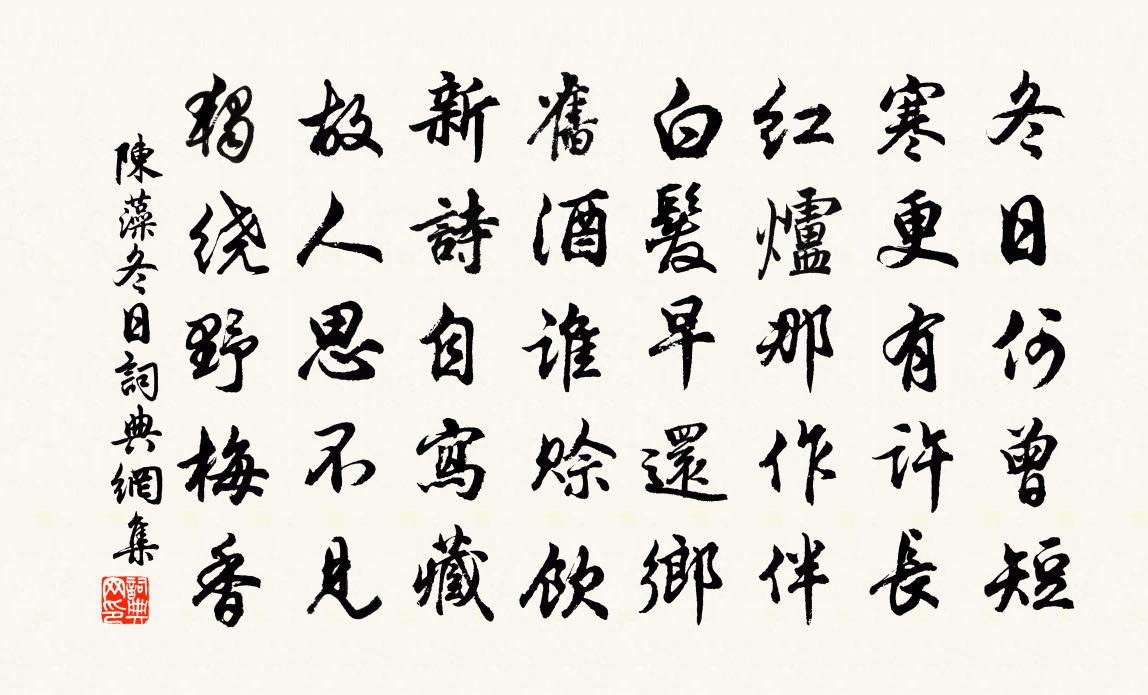 冬日何曾短
寒更有許長
紅爐那作伴
白髮早還鄉
舊酒誰賒飲
新詩自寫藏
故人思不見
獨繞野梅香
陳藻冬日詞典網集
詞典網印